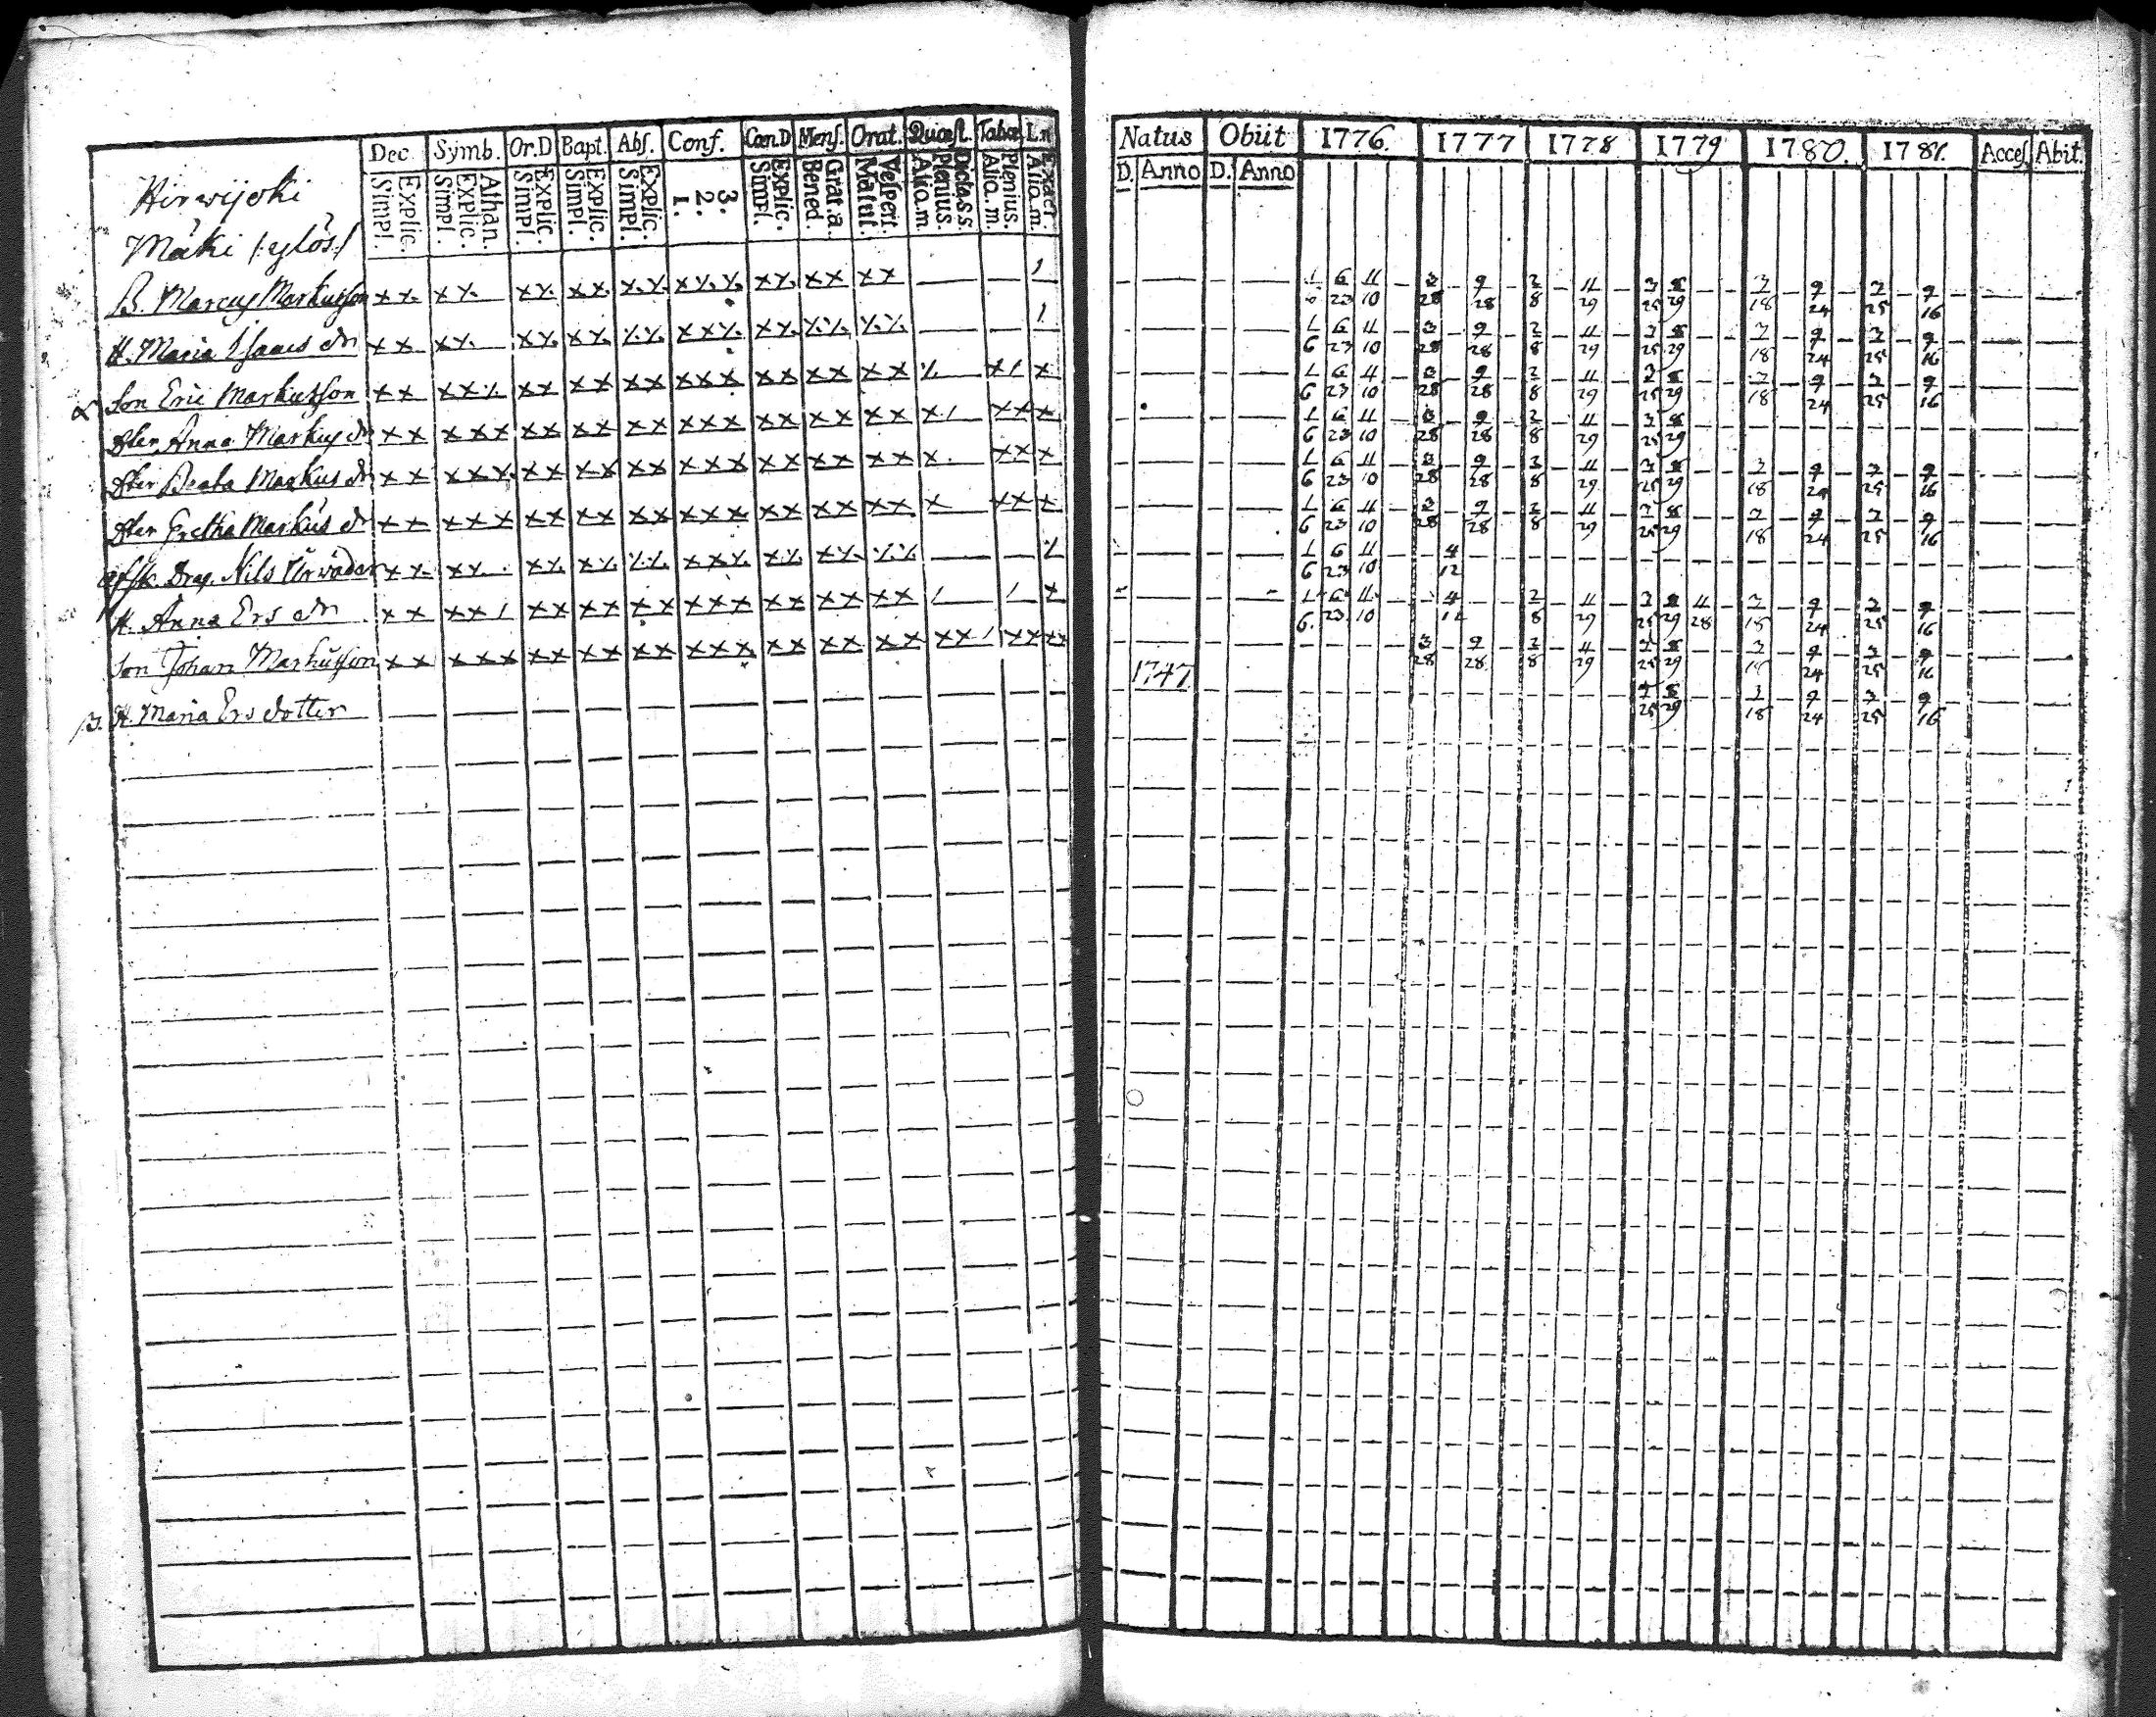 Dec. Symb. Or.D Bapt. Abſ. Conf. Cœn.D Menſ. Orat. Quæſt. Tabœ L.n
Simpl. Explic. Simpl. Explic. Athan. Simpl. Explic. Simpl. Explic. Simpl. Explic. 1. 2. 3. Simpl. Explic. Bened. Grat.a. Matut. Veſpert. Alio.m. Plenius. Dicta.s.s. Alio.m. Plenius. Alio.m. Exact.
Hirwijoki
Mäki /:ylös:/
B. Marcus Markusson
H. Maria Isaacs dr
Son Eric Markusson
Dter Anna Markus dr
Dter Beata Markus dr
Dter Gretha Markus dr
afsk. Drag. Nils Urväder
H. Anna Ers dr
Son Johan Markusson
H. Maria Ersdotter
Natus Obiit 1776. 1777 1778 1779 1780. 1781. Acceſ Abit.
D. Anno D. Anno
1 6 11 3 9 2 11 3 8 3 9 3 9
23 10 28 28 8 29 25 29 18 24 25 16
1 6 11 3 9 2 11 3 8 3 9 3 9
6 23 10 28 28 8 29 25 29 18 24 25 16
1 6 11 3 9 2 11 3 8 3 9 3 9
6 23 10 28 28 8 29 25 29 18 24 25 16
1 6 11 3 9 2 11 3 8
6 23 10 28 28 8 29 25 29
1 6 11 3 9 2 11 3 8 3 9 3 9
6 23 10 28 28 8 29 25 29 18 24 25 16
1 6 11 3 9 2 11 3 8 3 9 3 9
6 23 10 28 28 8 29 25 29 18 24 25 16
1 6 11 4
6 23 10 12
1 6 11 4 2 11 3 8 11 3 9 3 9
6 23 10 12 8 29 25 29 28 18 24 25 16
3 9 2 11 3 8 3 9 3 9
1747 28 28 8 29 25 29 18 24 25 16
3 8 3 9 3 9
25 29 18 24 25 16